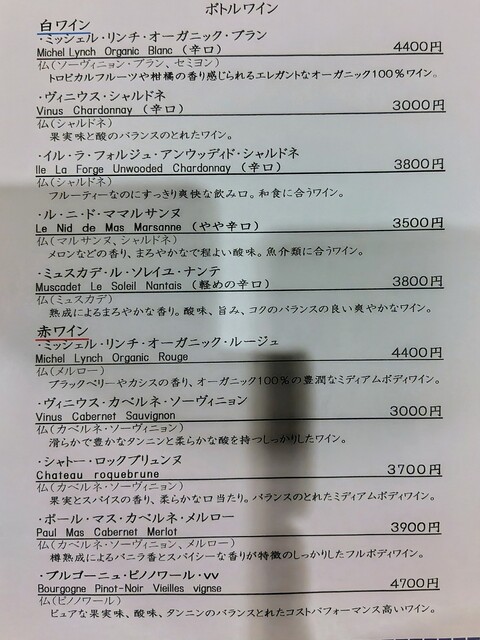 ボトルワイン
白ワイン
・ミッシェル・リンチ・オーガニック・ブラン
Michel Lynch Organic Blanc (辛口) 4400円
仏(ソーヴィニョン・ブラン、セミヨン)
トロピカルフルーツや柑橘の香り感じられるエレガントなオーガニック100%ワイン。
・ヴィニウス・シャルドネ
Vinus Chardonnay (辛口) 3000円
仏(シャルドネ)
果実味と酸のバランスのとれたワイン。
・イル・ラ・フォルジュ・アンウッディド・シャルドネ
Ile La Forge Unwooded Chardonnay (辛口) 3800円
仏(シャルドネ)
フルーティーなのにすっきり爽快な飲み口。和食に合うワイン。
・ル・ニ・ド・ママルサンヌ
Le Nid de Mas Marsanne (やや辛口) 3500円
仏(マルサンヌ、シャルドネ)
メロンなどの香り、まろやかなで程よい酸味。魚介類に合うワイン。
・ミュスカデ・ル・ソレイユ・ナンテ
Muscadet Le Soleil Nantais (軽めの辛口) 3800円
仏(ミュスカデ)
熟成によるまろやかな香り。酸味、旨み、コクのバランスの良い爽やかなワイン。
赤ワイン
・ミッシェル・リンチ・オーガニック・ルージュ
Michel Lynch Organic Rouge 4400円
仏(メルロー)
ブラックベリーやカシスの香り、オーガニック100%の豊潤なミディアムボディワイン。
・ヴィニウス・カベルネ・ソーヴィニョン
Vinus Cabernet Sauvignon 3000円
仏(カベルネ・ソーヴィニョン)
滑らかで豊かなタンニンと柔らかな酸を持つしっかりしたワイン。
・シャトー・ロックブリュンヌ
Chateau roquebrune 3700円
仏(カベルネ・ソーヴィニョン)
果実とスパイスの香り、柔らかな口当たり。バランスのとれたミディアムボディワイン。
・ポール・マス・カベルネ・メルロー
Paul Mas Cabernet Merlot 3900円
仏(カベルネ・ソーヴィニョン、メルロー)
樽熟成によるバニラ香とスパイシーな香りが特徴のしっかりしたフルボディワイン。
・ブルゴーニュ・ピノノワール・vv
Bourgogne Pinot-Noir Vieilles vignse 4700円
仏(ピノノワール)
ピュアな果実味、酸味、タンニンのバランスとれたコストパフォーマンス高いワイン。